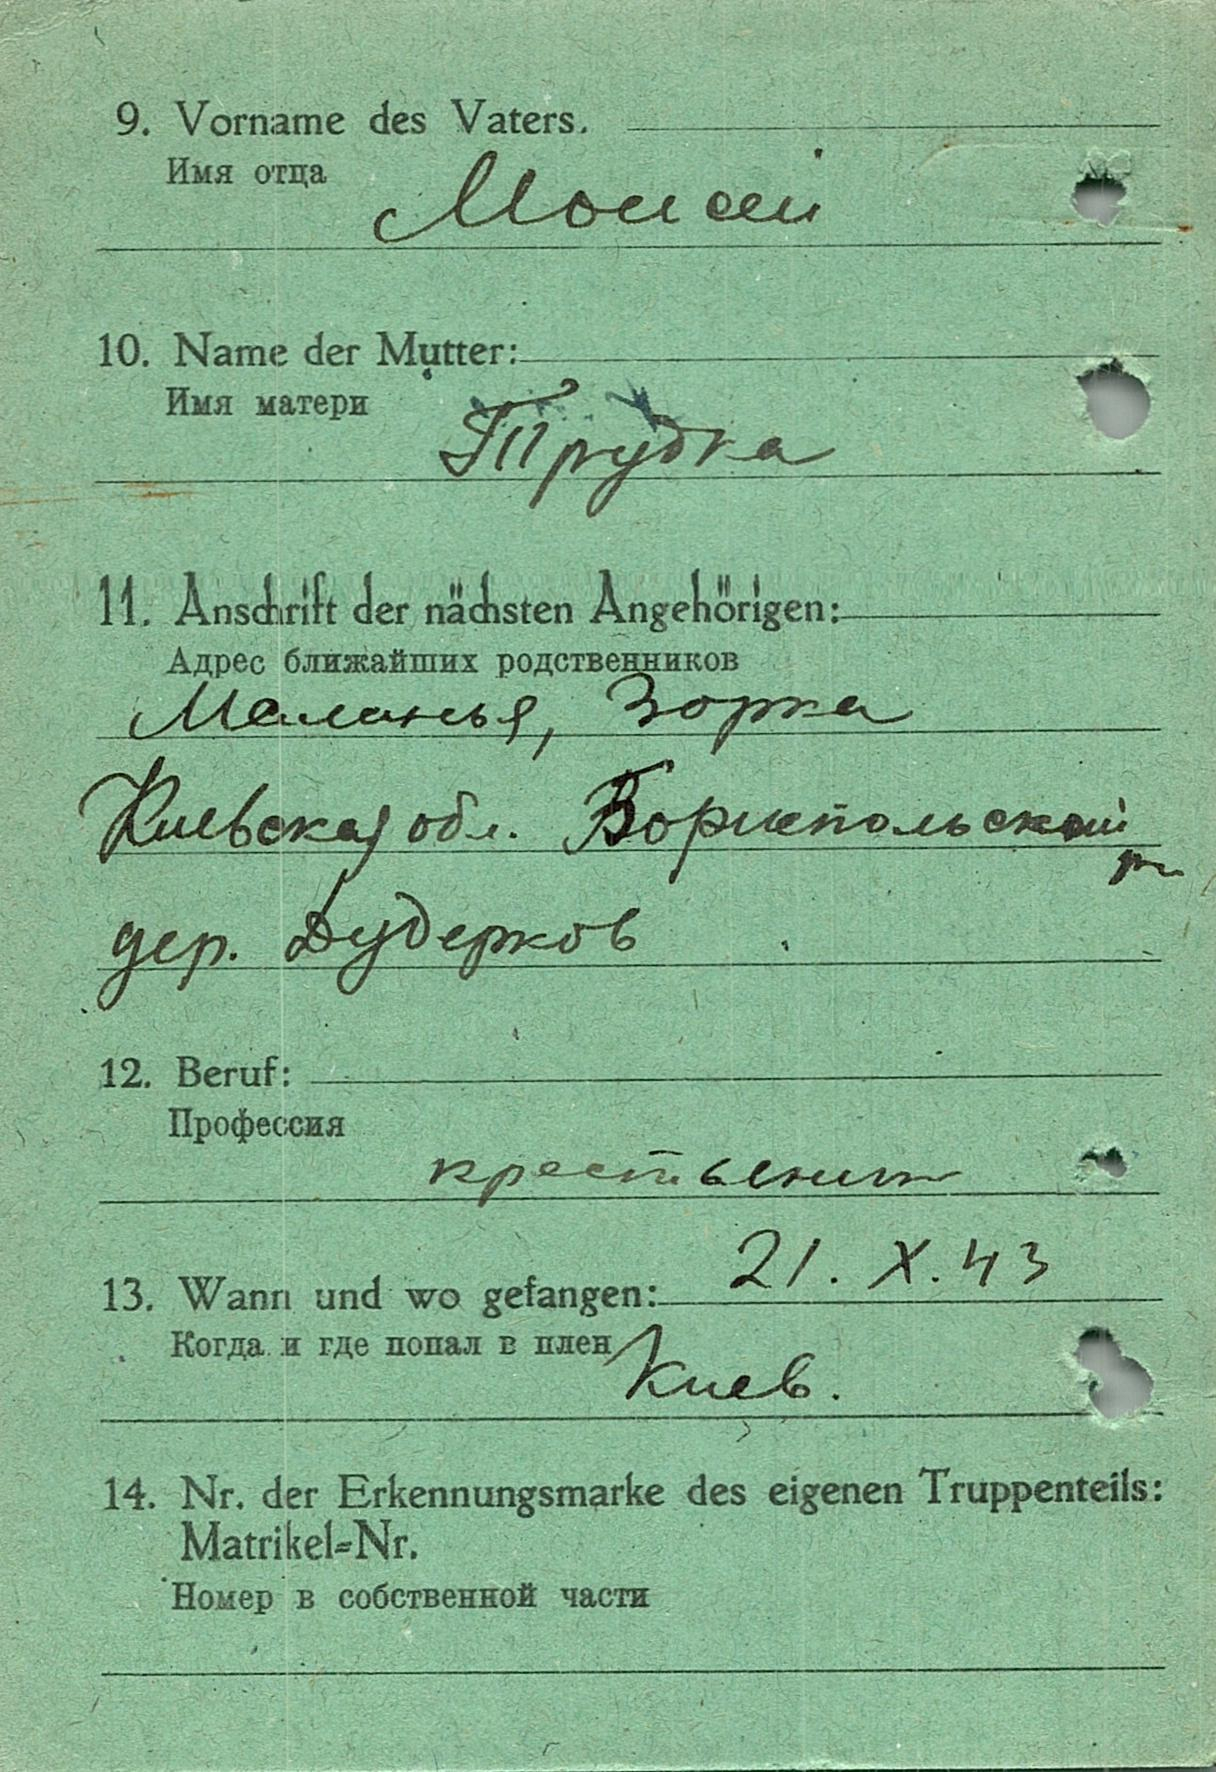 9. Vorname des Vaters.
Имя отца
Моисей
10. Name der Mutter:
Имя матери
Трудка
11. Anschrift der nächsten Angehörigen:
Адрес ближайших родственников
Маланья, Зорка
Киевская обл. Бориспольский
рн
дер. Дудерков
12. Beruf:
Профессия
крестьянин
21. X. 43
13. Wann und wo gefangen:
Когда и где попал в плен
Киев.
14. Nr. der Erkennungsmarke des eigenen Truppenteils:
Matrikel-Nr.
Номер в собственной части